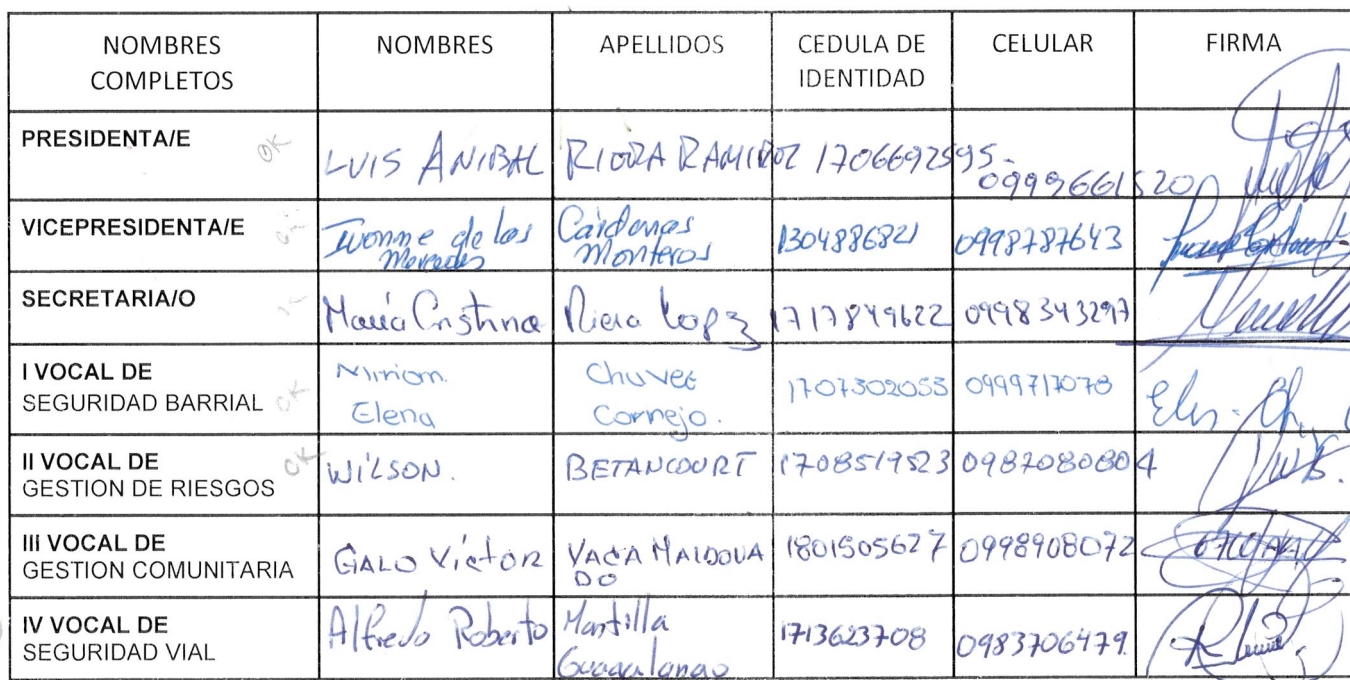 NOMBRES COMPLETOS NOMBRES APELLIDOS CEDULA DE IDENTIDAD CELULAR FIRMA
PRESIDENTA/E OK LUIS ANIBAL RIERA RAMIREZ 1706692595 0999661520
VICEPRESIDENTA/E OK Ivonne de las Mercedes Cárdenas Monteros 1304886821 0998787643
SECRETARIA/O María Cristina Riera Lopez 1717849622 0998343297
I VOCAL DE SEGURIDAD BARRIAL OK Miriam Elena Chavez Cornejo. 1707302053 0999717078
II VOCAL DE GESTION DE RIESGOS OK WILSON. BETANCOURT 1708519523 0987080804
III VOCAL DE GESTION COMUNITARIA GALO VICTOR VACA MALDONADO 1801505627 0998908072
IV VOCAL DE SEGURIDAD VIAL Alfredo Roberto Mantilla 1713623708 0983706479